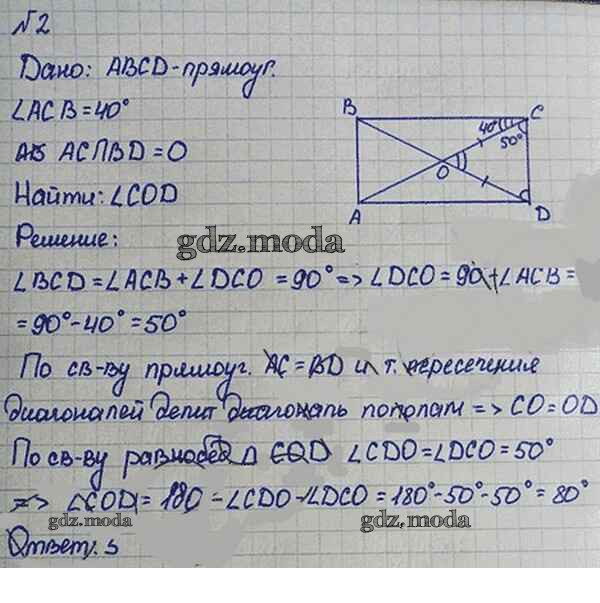 №2
Дано: ABCD-прямоуг.
∠ACB=40°
AC∩BD=O
Найти: ∠COD
Решение:
B
C
40°
50°
O
A
D
gdz.moda
∠BCD=∠ACB+∠DCO=90°=>∠DCO=90+∠ACB=
=90°-40°=50°
По св-ву прямоуг. AC=BD и т. пересечения
диагоналей делит диагональ пополам => CO=OD
По св-ву равнобед Δ COD ∠CDO=∠DCO=50°
=> ∠COD=180-∠CDO-∠DCO=180°-50°-50°=80°
gdz.moda gdz.moda
Ответ: 3